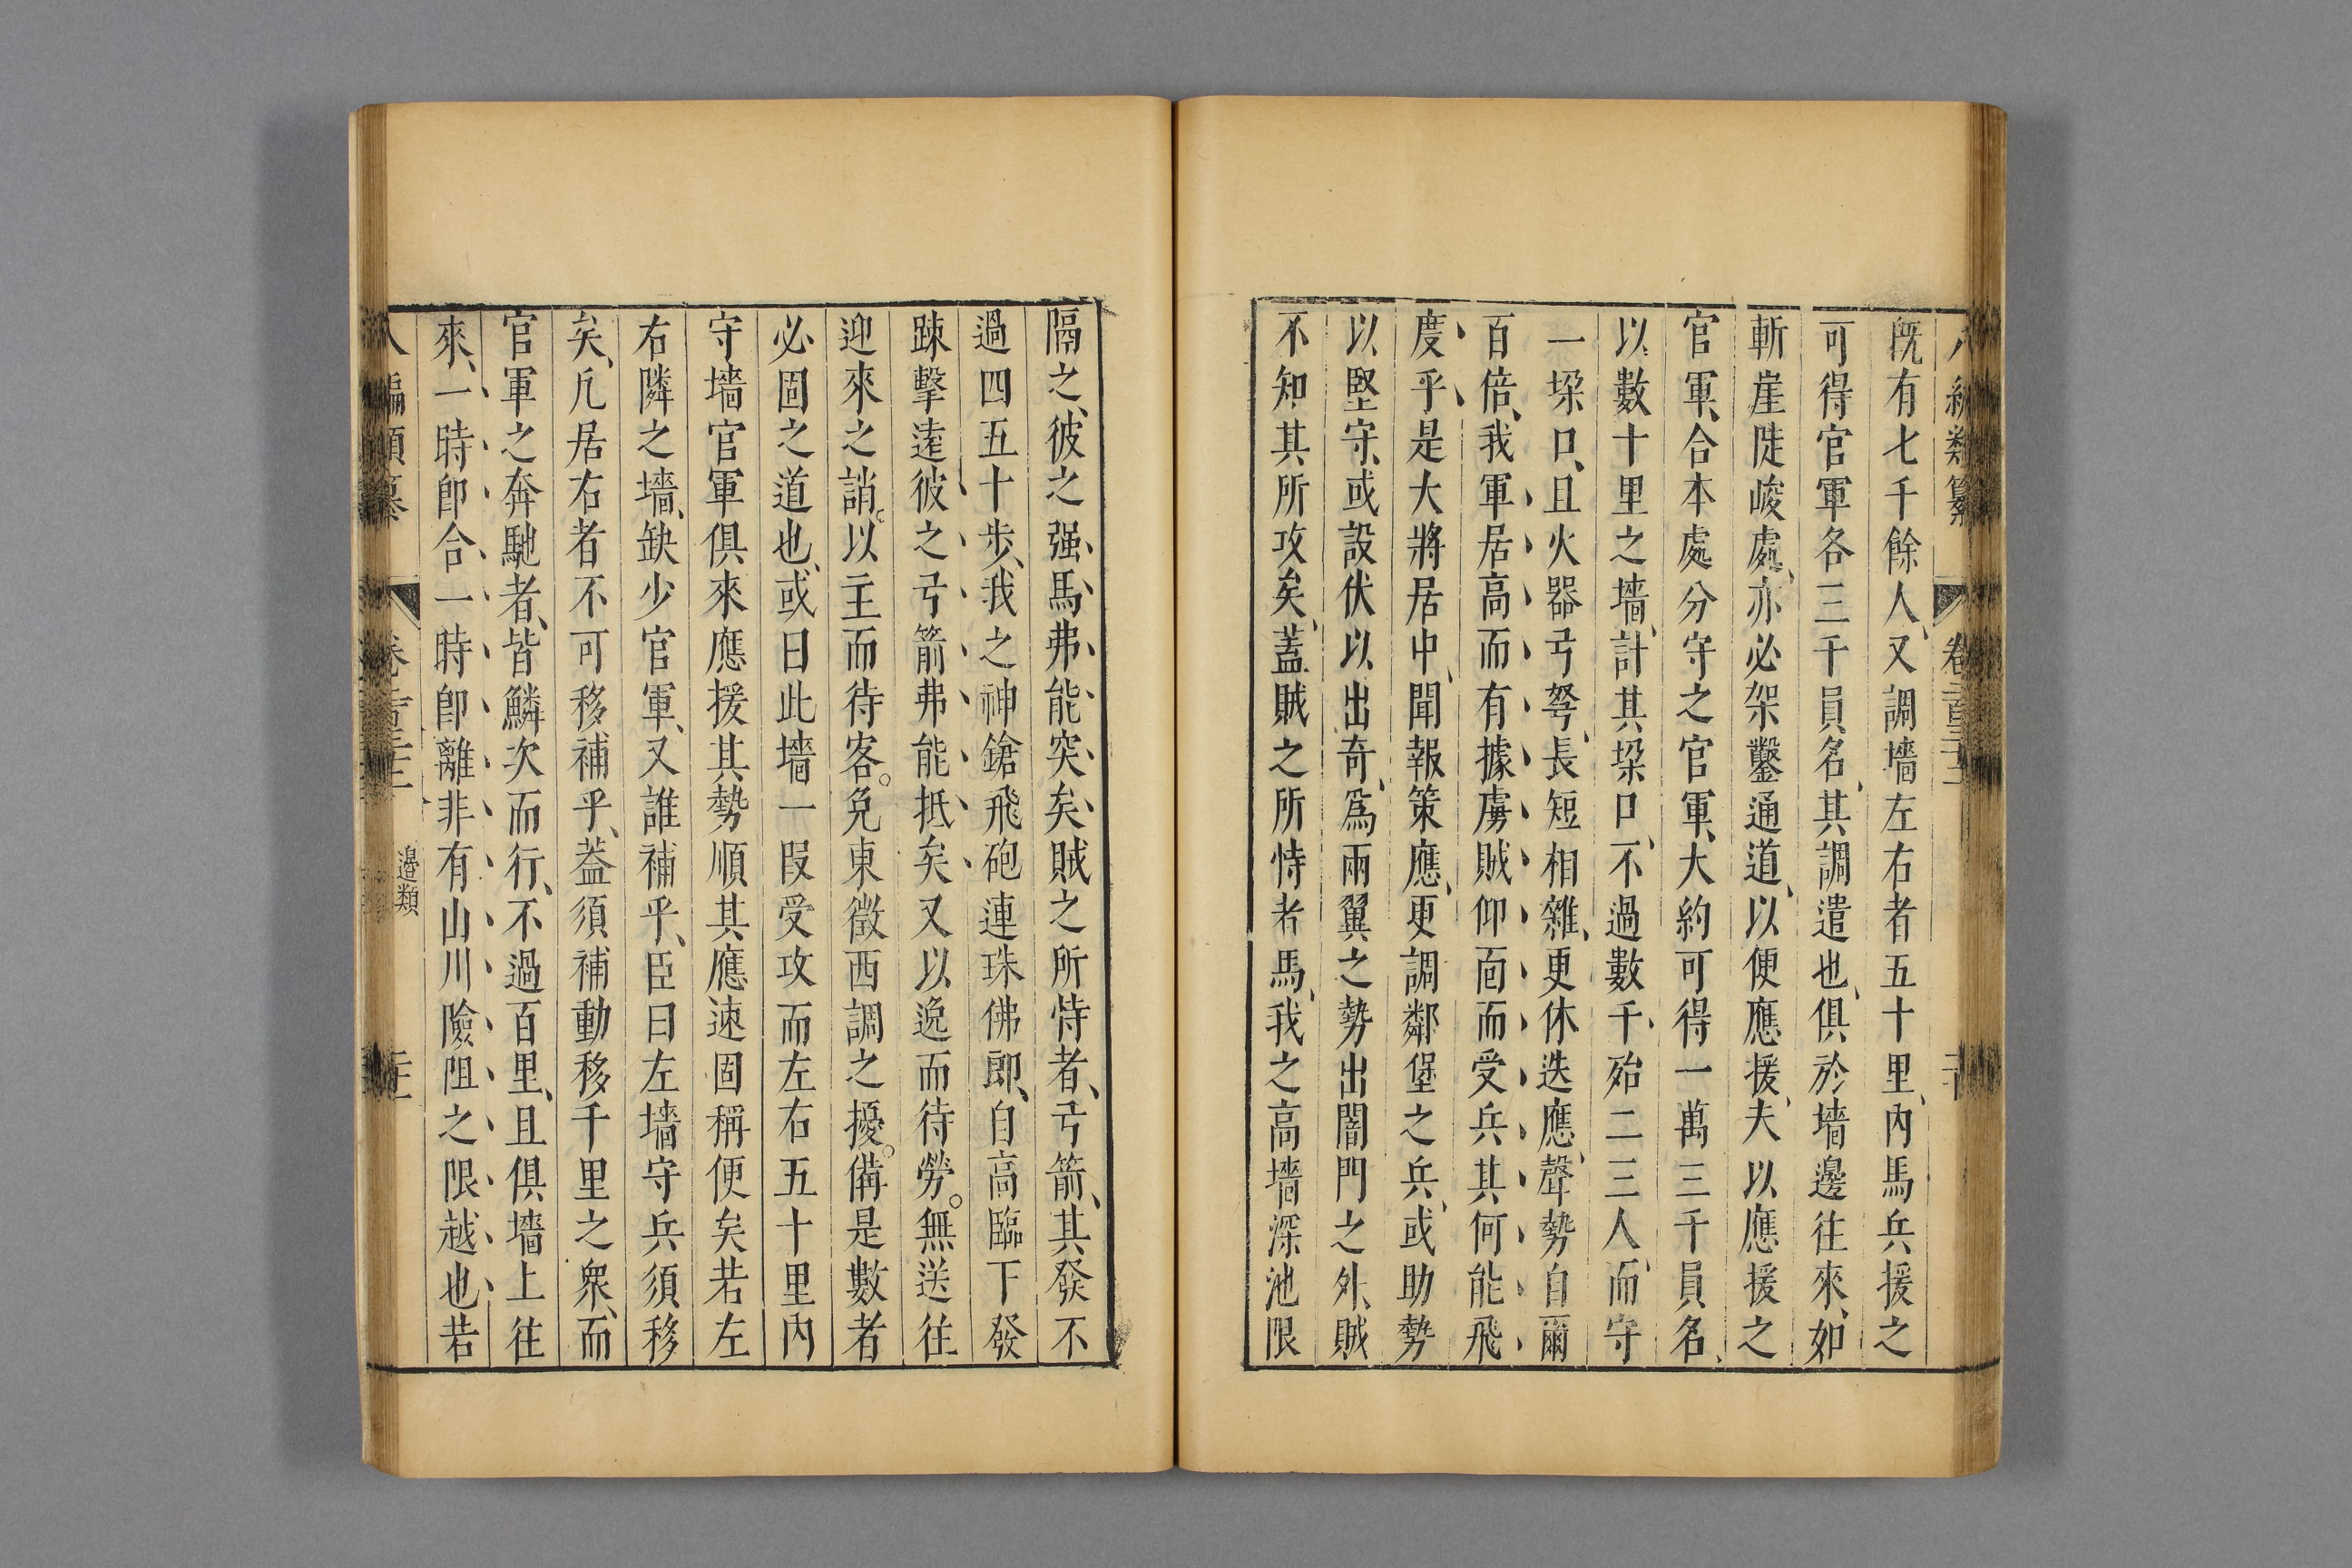 既有七千餘人又調墻左右者五十里內馬兵援之
可得官軍各三千員名其調遣也俱於墻邊往來如
斬崖陡峻處亦必架鑿通道以便應援夫以應援之
官軍合本處分守之官軍大約可得一萬三千員名
以數十里之墻計其垜口不過數千殆二三人而守
一垜口且火器弓弩長短相雜更休迭應聲勢自爾
百倍我軍居高而有據虜賊仰面而受兵其何能飛
度乎是大將居中聞報策應更調鄰堡之兵或助勢
以堅守或設伏以出奇爲兩翼之勢出闇門之外賊
不知其所攻矣蓋賊之所恃者馬我之高墻深池限
隔之彼之强馬弗能突矣賊之所恃者弓箭其發不
過四五十步我之神鎗飛砲連珠佛郎自高臨下發
踈擊遠彼之弓箭弗能抵矣又以逸而待勞無送往
迎來之誚以主而待客免東徵西調之擾備是數者
必固之道也或曰此墻一叚受攻而左右五十里內
守墻官軍俱來應援其勢順其應速固稱便矣若左
右隣之墻缺少官軍又誰補乎臣曰左墻守兵須移
矣凡居右者不可移補乎葢須補動移千里之衆而
官軍之奔馳者皆鱗次而行不過百里且俱墻上往
來一時卽合一時卽離非有山川險阻之限越也若
編類纂
邉類